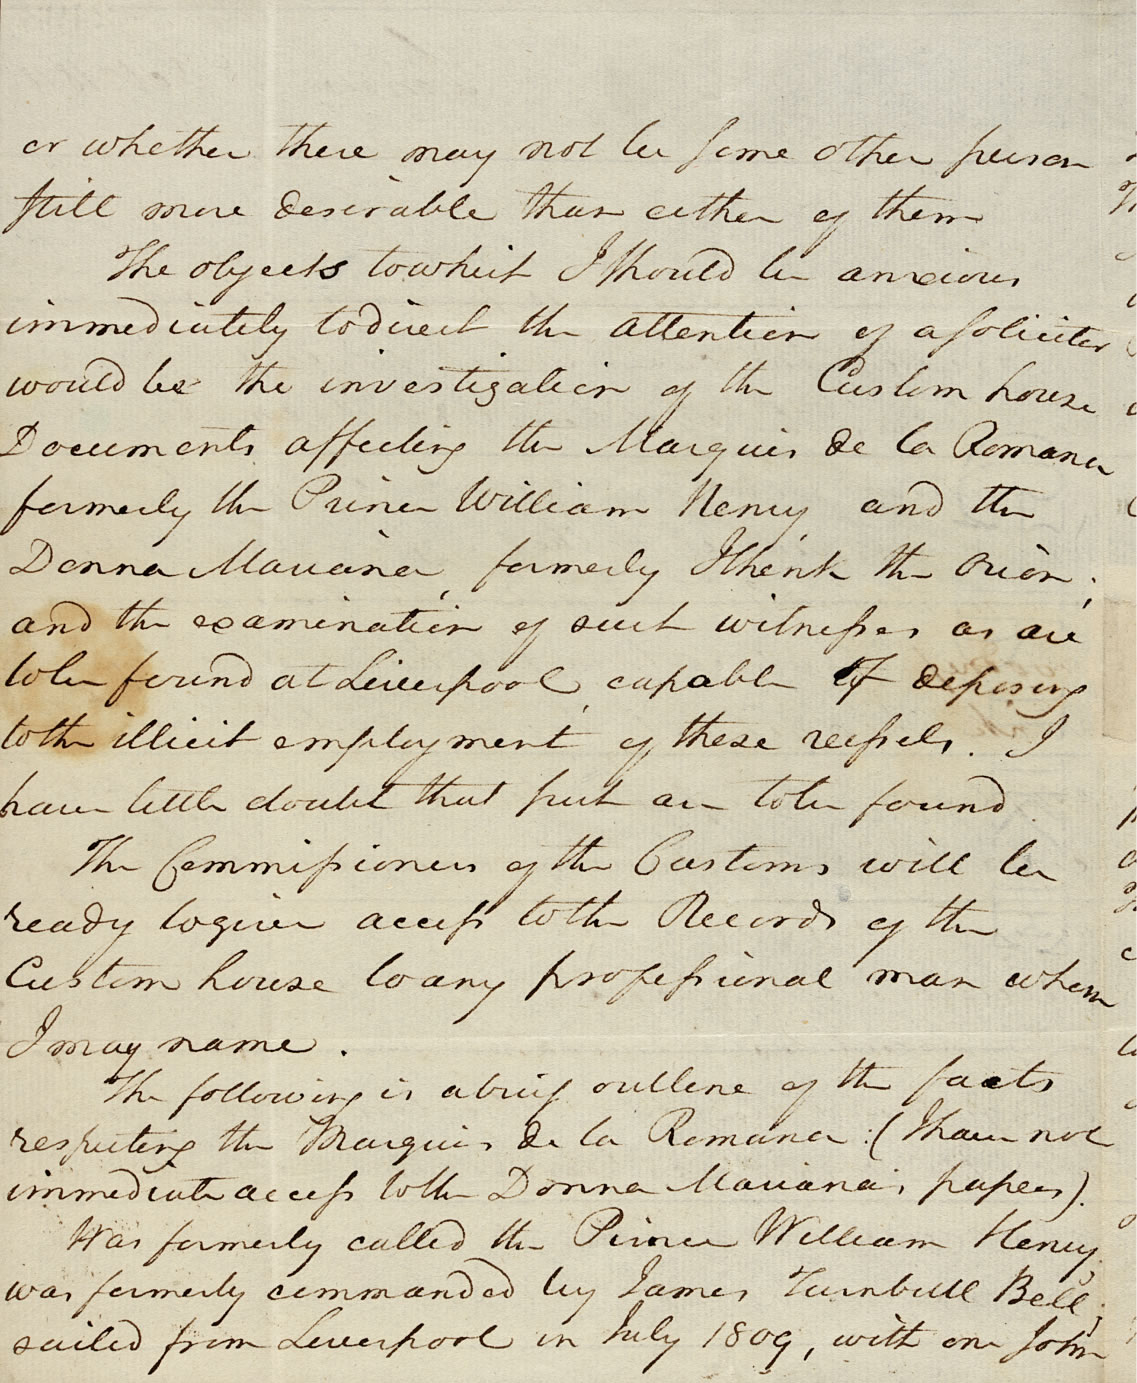 or whether there may not be some other person
still more desirable than either of them
The objects to which I should be anxious
immediately to direct the attention of a solicitor
would be the investigation of the Custom house
Documents affecting the Marquis de la Romana
formerly the Prince William Henry, and the
Donna Mariana, formerly I think the Orion;
and the examination of such witnesses as are
to be found at Liverpool, capable of deposing
to the illicit employment of these vessels. I
have little doubt that such are to be found.
The Commissioners of the Customs will be
ready to give access to the Records of the
Custom house to any professional man whom
I may name.
The following is a brief outline of the facts
respecting the Marquis de la Romana: (I have not
immediate access to the Donna Mariana's papers).
Was formerly called the Prince William Henry,
was formerly commanded by James Turnbull Bell;
sailed from Liverpool in July 1809, with one John